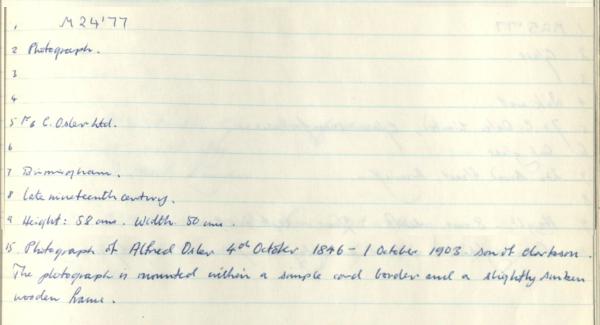 1 M24'77
2 Photograph.
3
4
5 F & C. Osler Ltd.
6
7 Birmingham.
8 Late nineteenth century.
9 Height: 58 cms. Width 50 cms.
15. Photograph of Alfred Osler 4th October 1846 - 1 October 1903 son of Clarkson.
The photograph is mounted within a simple card border and a slightly sunken
wooden frame.